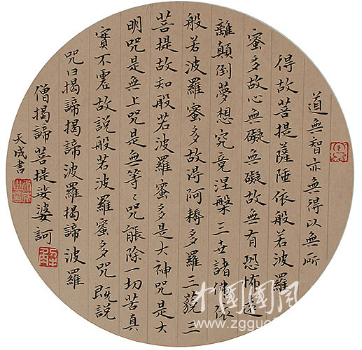 道無智亦無得以無所
得故菩提薩埵依般若波羅
蜜多故心無礙無礙故無有恐怖遠
離顛倒夢想究竟涅槃三世諸佛依
般若波羅蜜多故得阿耨多羅三藐三
菩提故知般若波羅蜜多是大神咒是大
明咒是無上咒是無等〻咒能除一切苦真
實不虛故說般若波羅蜜多咒既說
咒曰揭諦揭諦波羅揭諦波羅
僧揭諦菩提娑婆訶
天成書